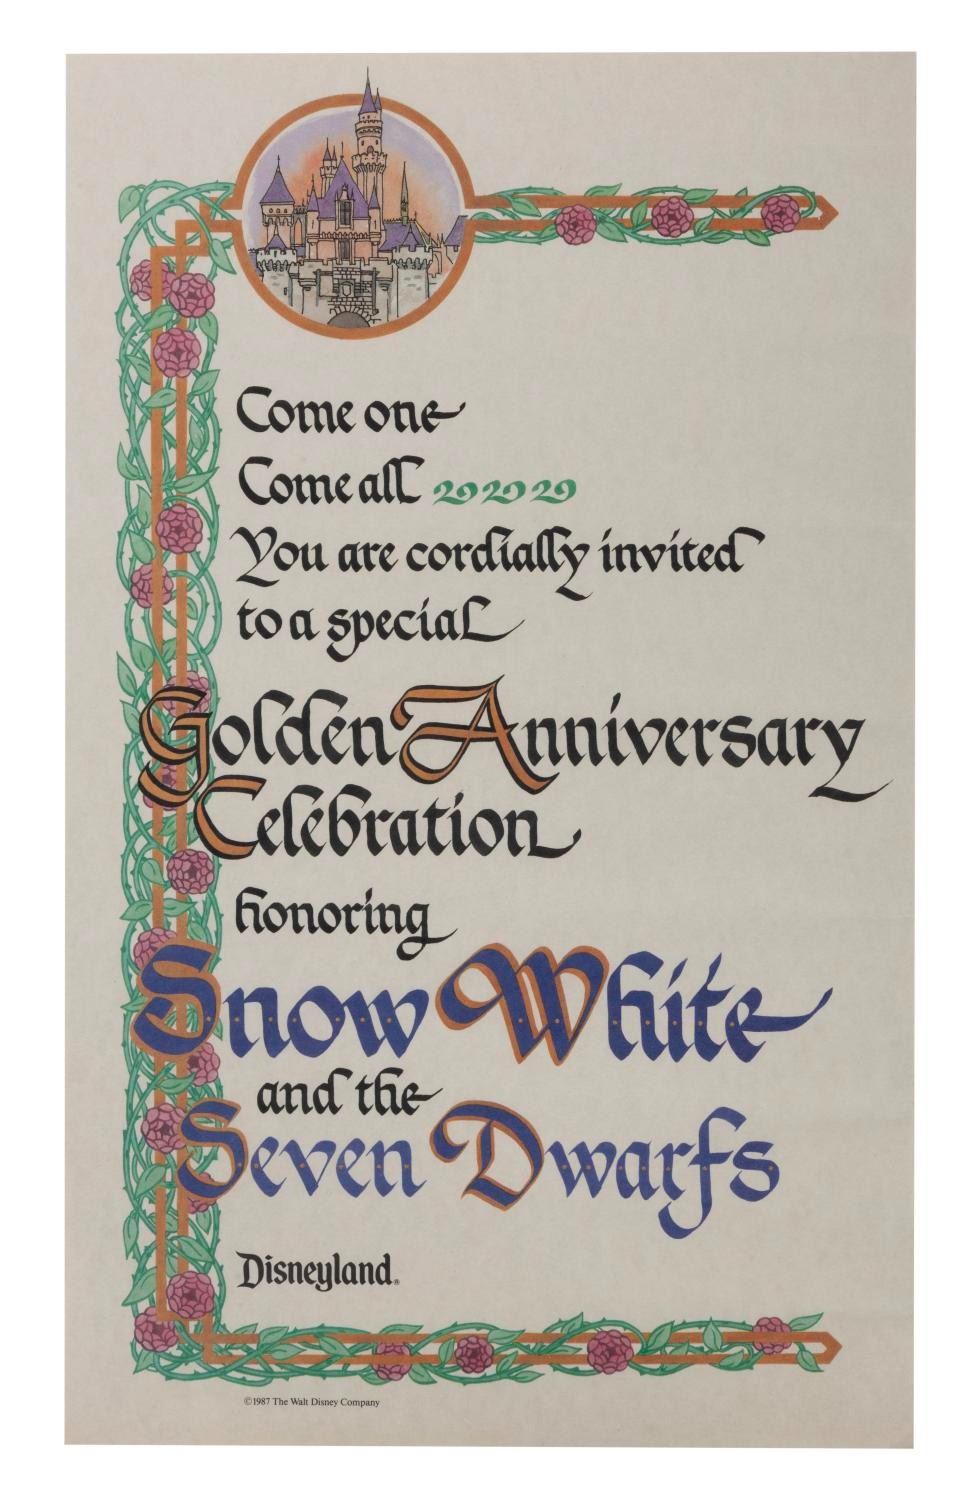 Come one
Come all
You are cordially invited
to a special
Golden Anniversary
Celebration
honoring
Snow White
and the
Seven Dwarfs
Disneyland®
©1987 The Walt Disney Company